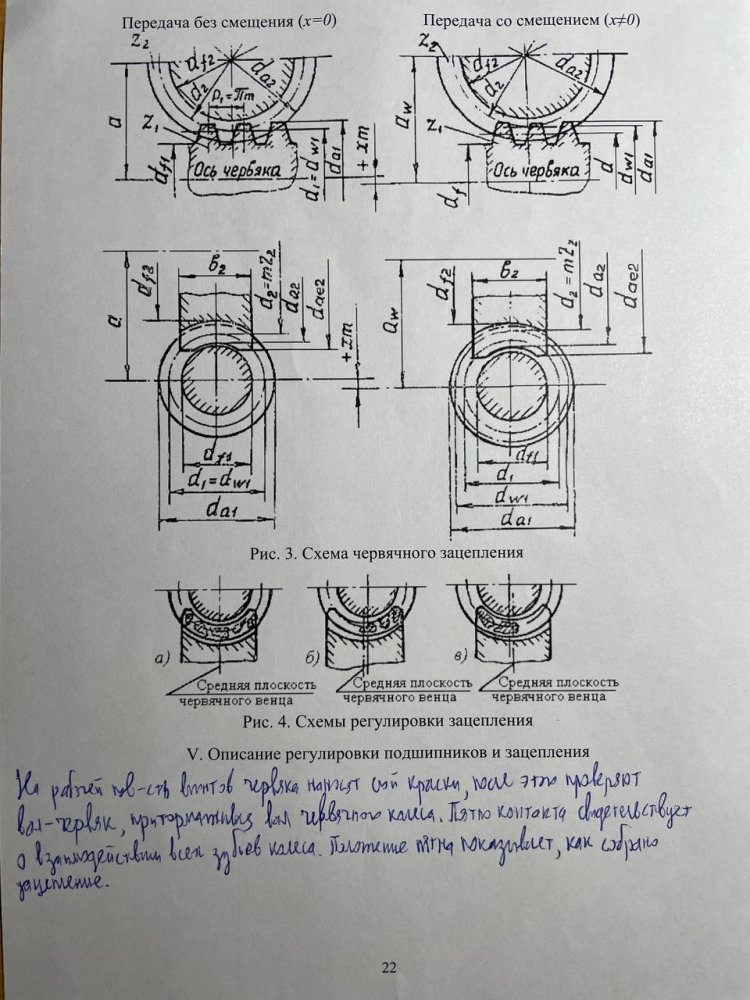 Передача без смещения (x=0) Передача со смещением (x≠0)
z₂ z₂
df2 da2 df2 da2
d₂ p₁=πm d₂
a aw
z₁ z₁
df1 Ось червяка d₁=dw1 da1 +xm df Ось червяка d dw1 da1
df2 b₂ d₂=mz₂ da2 dae2 df2 b₂ d₂=mz₂ da2 dae2
a +xm aw
df1 df1
d₁=dw1 d₁
da1 dw1
da1
Рис. 3. Схема червячного зацепления
а) б) в)
Средняя плоскость Средняя плоскость Средняя плоскость
червячного венца червячного венца червячного венца
Рис. 4. Схемы регулировки зацепления
V. Описание регулировки подшипников и зацепления
На рабочей пов-сть витков червяка наносят слой краски, после этого проверяют
вал-червяк, притормаживая вал червячного колеса. Пятно контакта свидетельствует
о взаимодействии всех зубьев колеса. Положение пятна показывает, как собрано
зацепление.
22